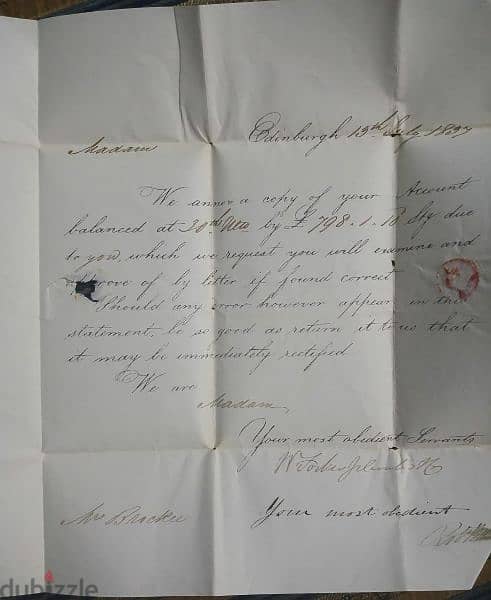 Edinburgh 13th July 1837
Madam
We annex a copy of your Account
balanced at 30th Ulto by £798.1.8 Stg due
to you, which we request you will examine and
approve of by letter if found correct
Should any error however appear in this
statement, be so good as return it to us that
it may be immediately rectified
We are
Madam,
Your most obedient Servants
W Forbes
Mrs
Your most obedient
dubizzle